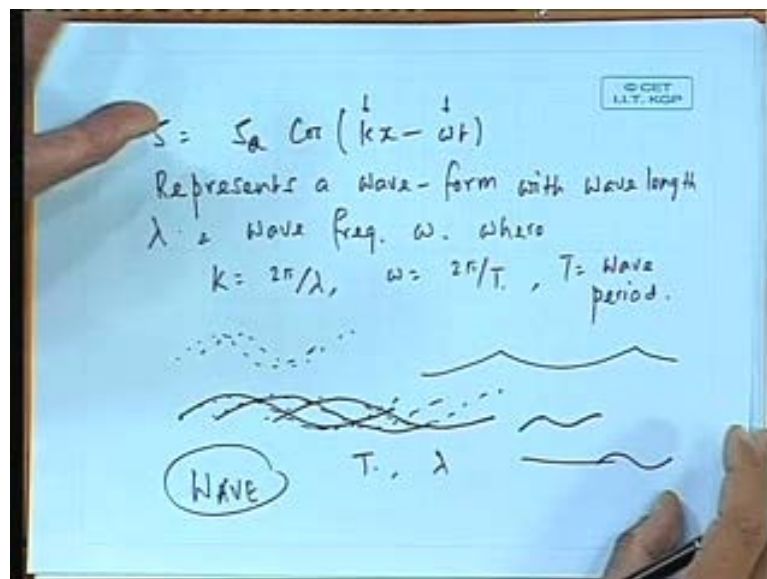 © CET
I.I.T. KGP
ζ = ζa Cos (kx - ωt)
Represents a wave-form with wave length
λ & wave freq. ω. where
k = 2π/λ, ω = 2π/T. , T = Wave
period.
T. , λ
WAVE